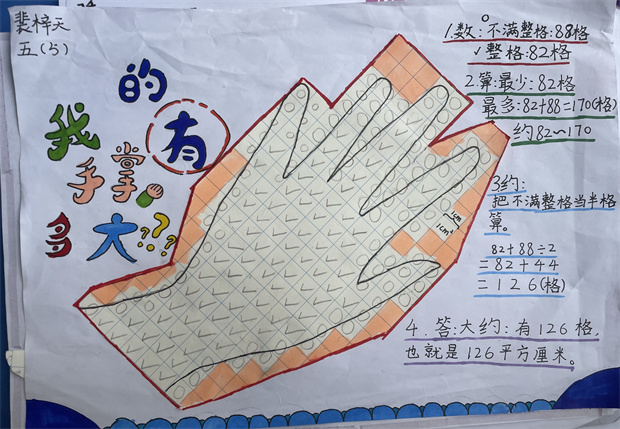 裴梓天
五(5)
我的
手掌有
多大???
1.数:○不满整格:88格
✓整格:82格
2.算:最少:82格
最多:82+88=170(格)
约82~170
3约:
把不满整格当半格
算。
82+88÷2
=82+44
=126(格)
1cm
1cm²
4.答:大约:有126格,
也就是126平方厘米。